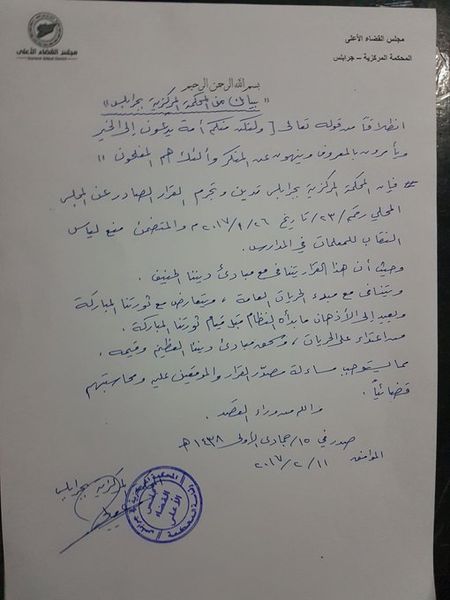 مجلس القضاء الأعلى
مجلس القضاء الأعلى
المحكمة المركزية – جرابلس
بسم الله الرحمن الرحيم
" بيان من المحكمة المركزية بجرابلس "
انطلاقاً من قوله تعالى [ ولتكن منكم أمة يدعون إلى الخير
ويأمرون بالمعروف وينهون عن المنكر وأولئك هم المفلحون "
فإن المحكمة المركزية بجرابلس تدين وتجرم القرار الصادر عن المجلس
المحلي رقم /٢٣/ تاريخ ٢٠١٧/١/٢٦م والمتضمن منع لباس
النقاب للمعلمات في المدارس.
وحيث أن هذا القرار يتنافى مع مبادئ ديننا الحنيف.
ويتنافى مع مبدء الحريات العامة ، ويتعارض مع ثورتنا المباركة
ويعيد إلى الأذهان ما بدأه النظام قبل قيام ثورتنا المباركة.
من اعتداء على الحريات ، مبادئ ديننا العظيم وقيمه.
مما يستوجب مساءلة مصدّر القرار والموقعين عليه ومحاسبتهم
قضائياً.
والله من وراء القصد.
صدر في ١٥/جمادى الأولى ١٤٣٨هـ
الموافق ٢٠١٧/٢/١١
المركزية بجرابلس
مجلس القضاء الأعلى